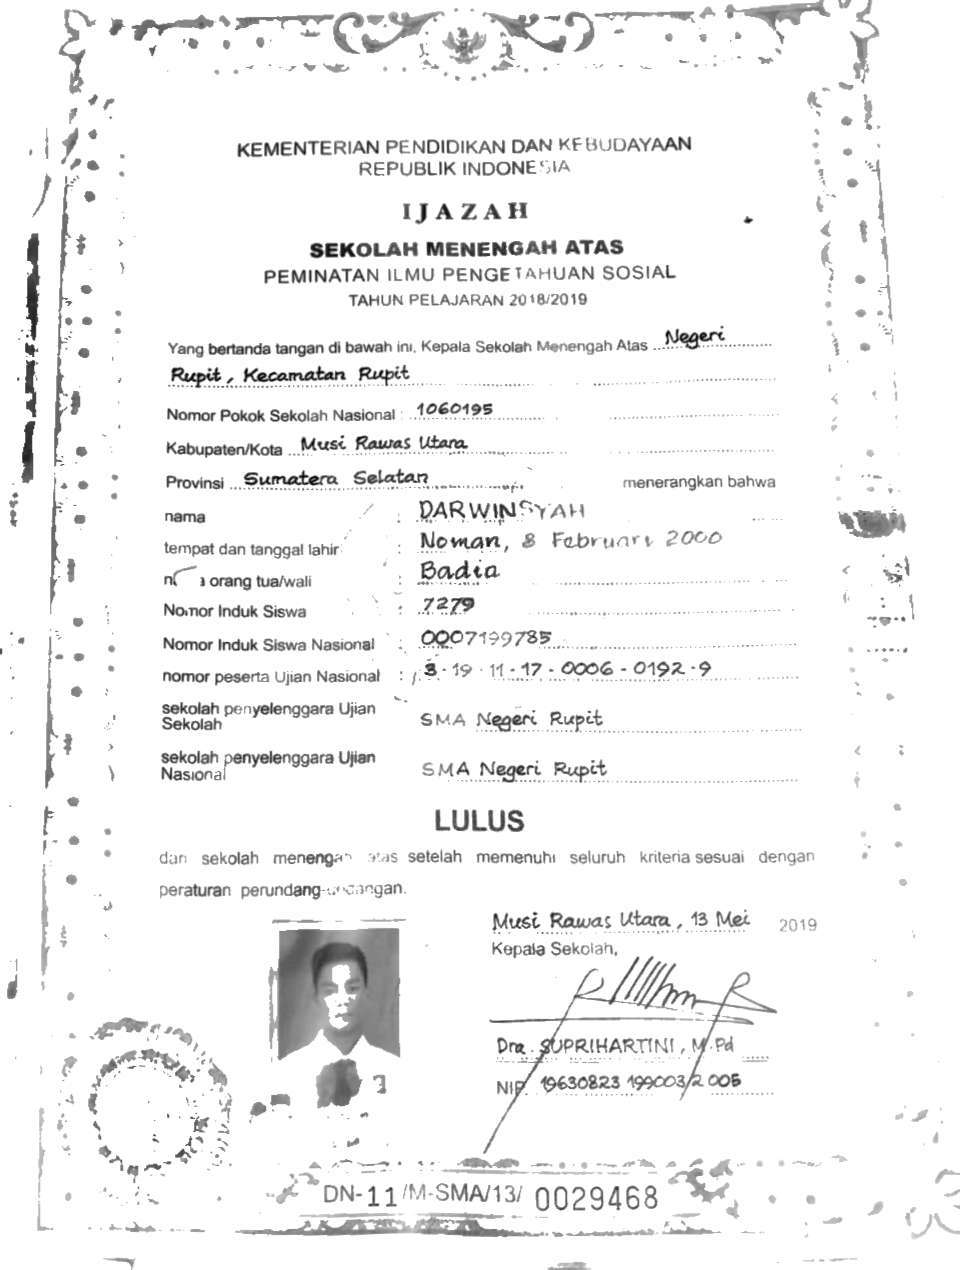 KEMENTERIAN PENDIDIKAN DAN KEBUDAYAAN
REPUBLIK INDONESIA
IJAZAH
SEKOLAH MENENGAH ATAS
PEMINATAN ILMU PENGETAHUAN SOSIAL
TAHUN PELAJARAN 2018/2019
Yang bertanda tangan di bawah ini, Kepala Sekolah Menengah Atas Negeri
Rupit, Kecamatan Rupit
Nomor Pokok Sekolah Nasional : 1060195
Kabupaten/Kota Musi Rawas Utara
Provinsi Sumatera Selatan menerangkan bahwa
nama : DARWINSYAH
tempat dan tanggal lahir : Noman, 8 Februari 2000
orang tua/wali : Badia
Nomor Induk Siswa : 7279
Nomor Induk Siswa Nasional : 0007199785
nomor peserta Ujian Nasional : 3-19-11-17-0006-0192-9
sekolah penyelenggara Ujian
Sekolah SMA Negeri Rupit
sekolah penyelenggara Ujian
Nasional SMA Negeri Rupit
LULUS
dari sekolah menengah atas setelah memenuhi seluruh kriteria sesuai dengan
peraturan perundang-undangan.
Musi Rawas Utara, 13 Mei 2019
Kepala Sekolah,
Dra. SUPRIHARTINI, M.Pd
NIP. 19630823 199003 2 005
DN-11/M-SMA/13/ 0029468